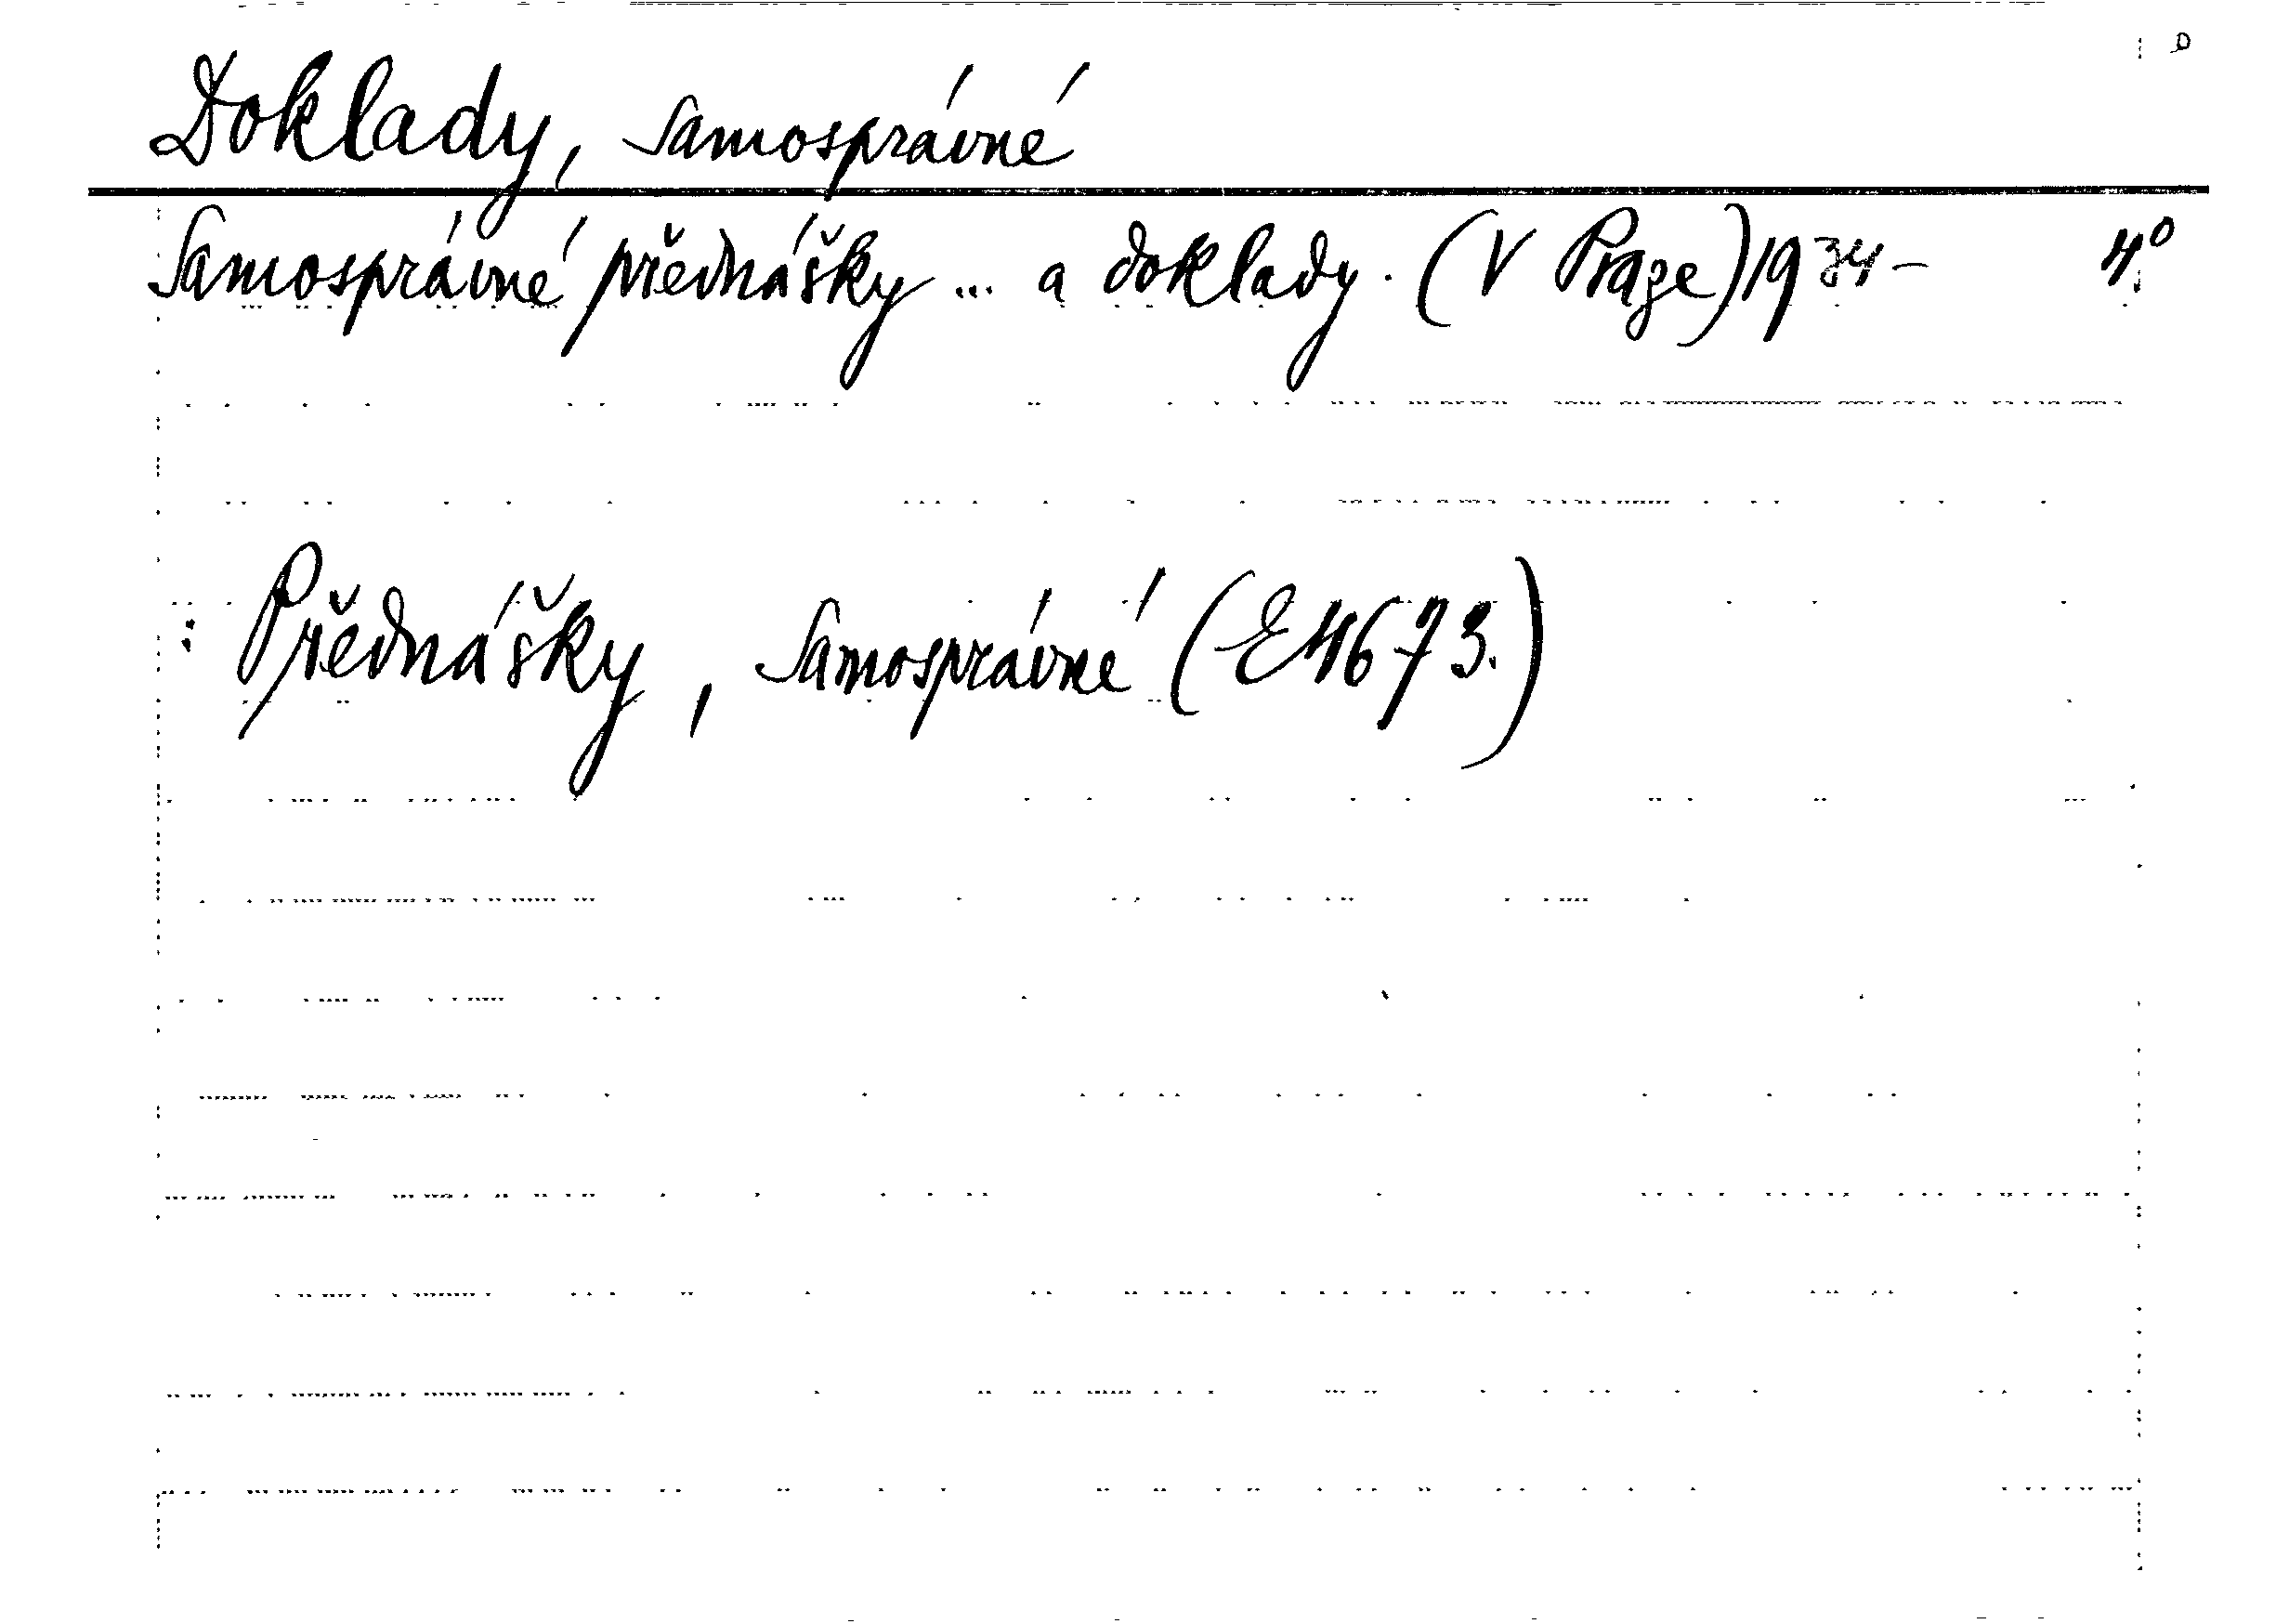 Doklady, samosprávné
Samosprávné přednášky ... a doklady. (V Praze) 1934- 4°
: Přednášky, samosprávné (E4673.)